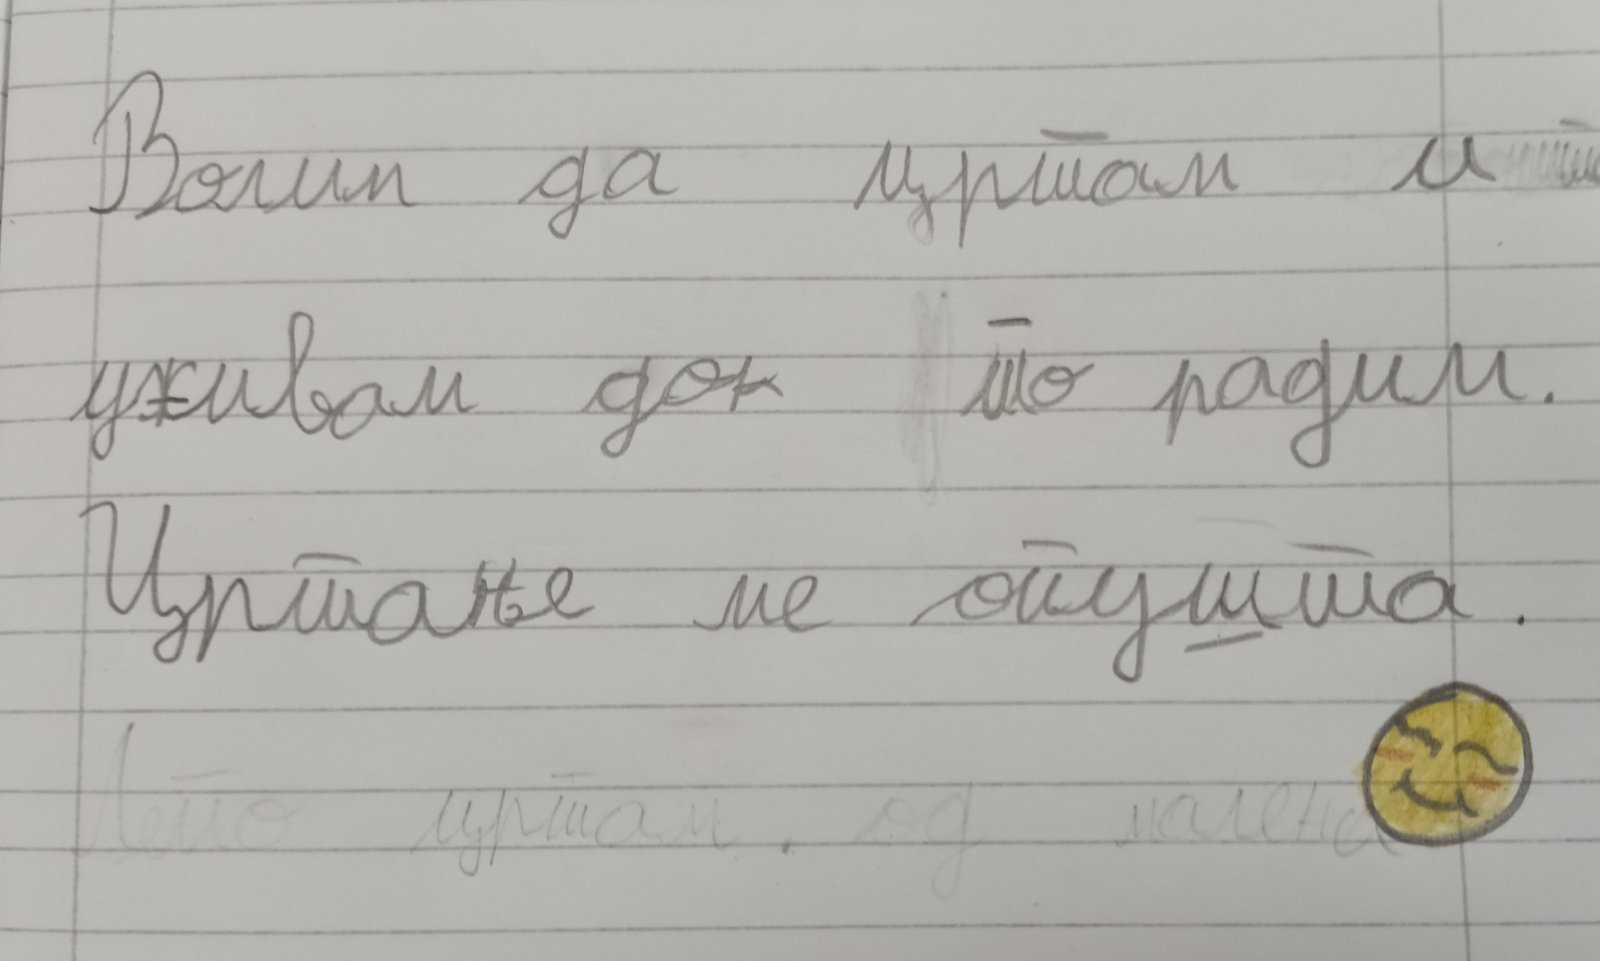 Волим да цртам и
уживам док то радим.
Цртање ме опушта.
Лепо цртам. од малена